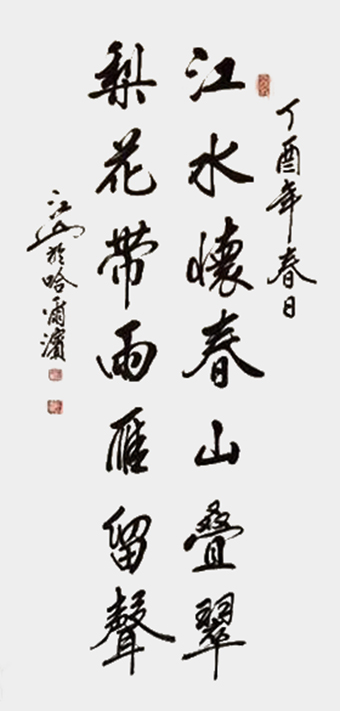 丁酉年春日
江水懷春山叠翠
梨花帶雨雁留聲
江山於哈爾濱